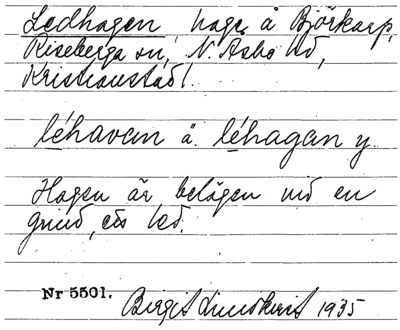 Ledhagen, hage å Björkarp,
Riseberga sn, N. Åsbo hd,
Kristianstads l.
léhavan ä. léhagan y.
Hagen är belägen vid en
grind, ett led.
Nr 5501. Birgit Lindkvist 1935